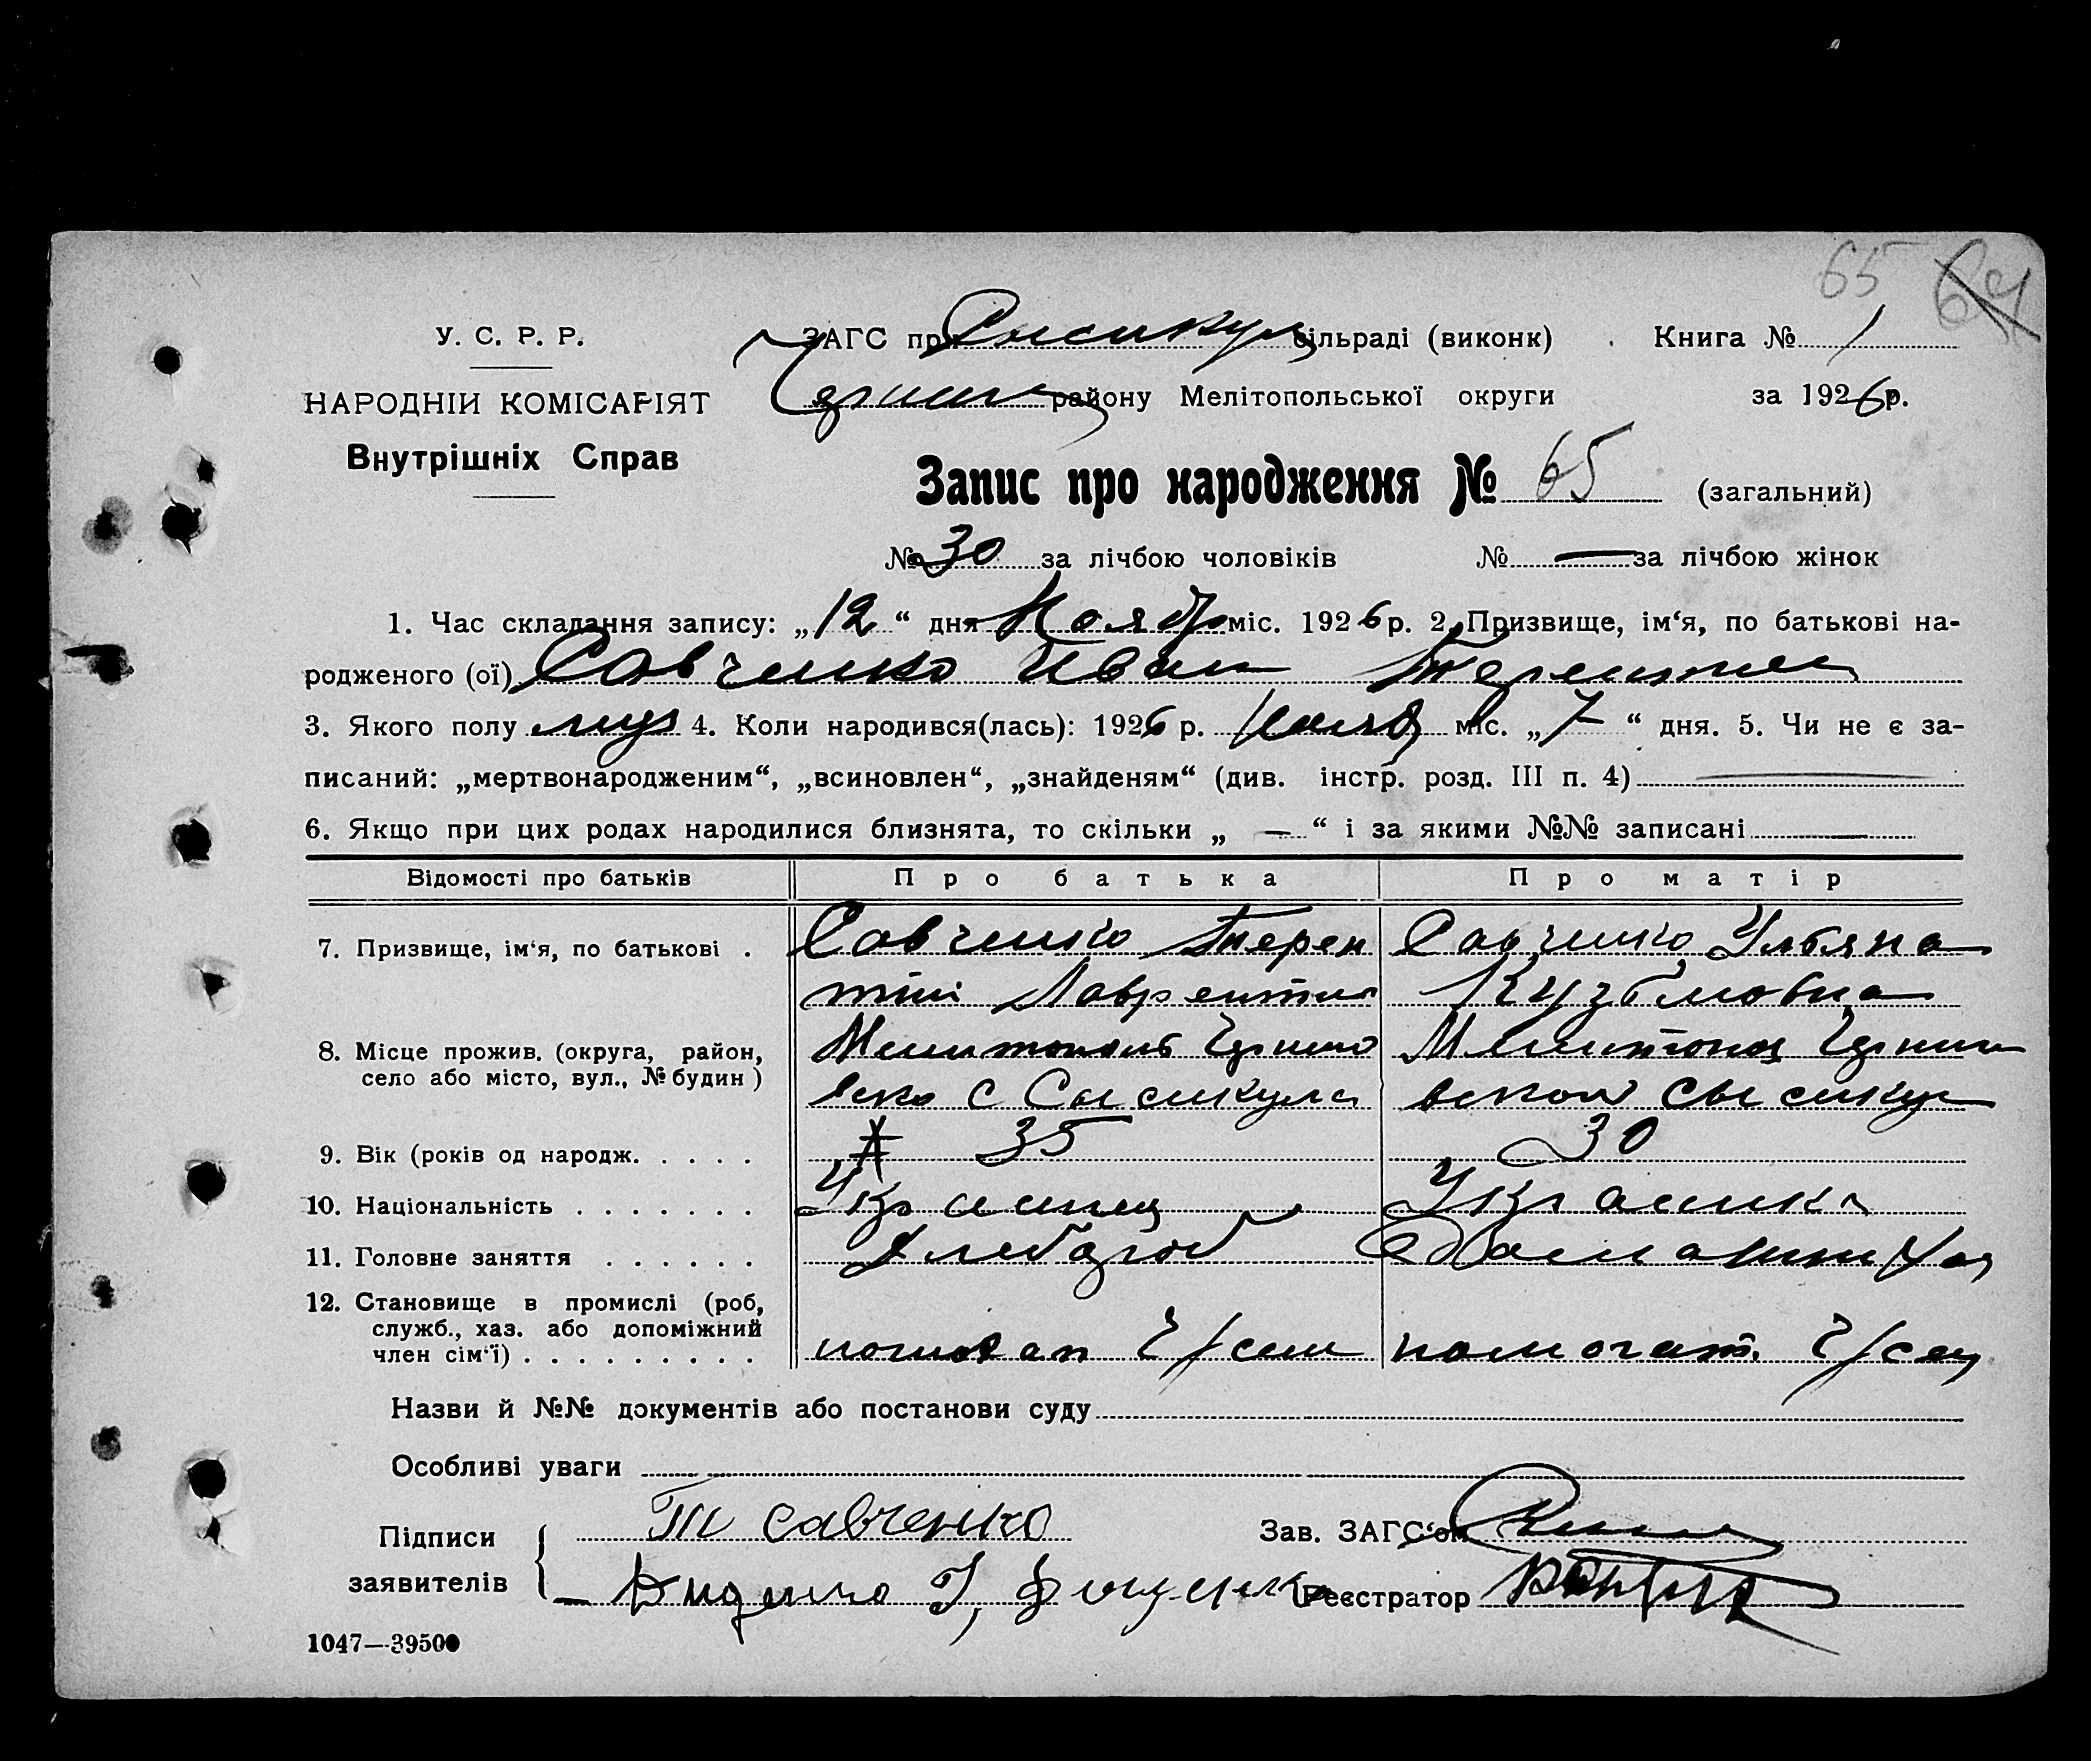 65 64
У. С. Р. Р.
НАРОДНІЙ КОМІСАРІЯТ
Внутрішніх Справ
ЗАГС при Сысикул сільраді (виконк) Книга № 1
району Мелітопольської округи за 1926 р.
Запис про народження № 65 (загальний)
№ 30 за лічбою чоловіків № — за лічбою жінок
1. Час складання запису: „12“ дня Нояб міс. 1926 р. 2. Призвище, ім‘я, по батькові на-
родженого (ої) Савченко Иван
3. Якого полу муж 4. Коли народився(лась): 1926 р. Нояб міс. „7“ дня. 5. Чи не є за-
писаний: „мертвонародженим“, „всиновлен“, „знайденям“ (див. інстр. розд. III п. 4) —
6. Якщо при цих родах народилися близнята, то скільки „ — “ і за якими №№ записані —
Відомості про батьків Про батька Про матір
7. Призвище, ім‘я, по батькові . Савченко Терен Савченко Ульяна
тий Лаврентие Кузьмовна
8. Місце прожив. (округа, район, село або місто, вул., № будин) Мелитополь
с Сысикула Сысикул
9. Вік (років од народж. . . . . 35 30
10. Національність . . . . . . . Украинец Украинка
11. Головне заняття . . . . . . Хлебороб
12. Становище в промислі (роб,
служб., хаз. або допоміжний
член сім‘ї) . . . . . . . . . помогат. Ч/сем
Назви й №№ документів або постанови суду
Особливі уваги
Підписи
заявителів
Т Савченко
Диденко
Зав. ЗАГС‘ом
Реєстратор
1047—39500